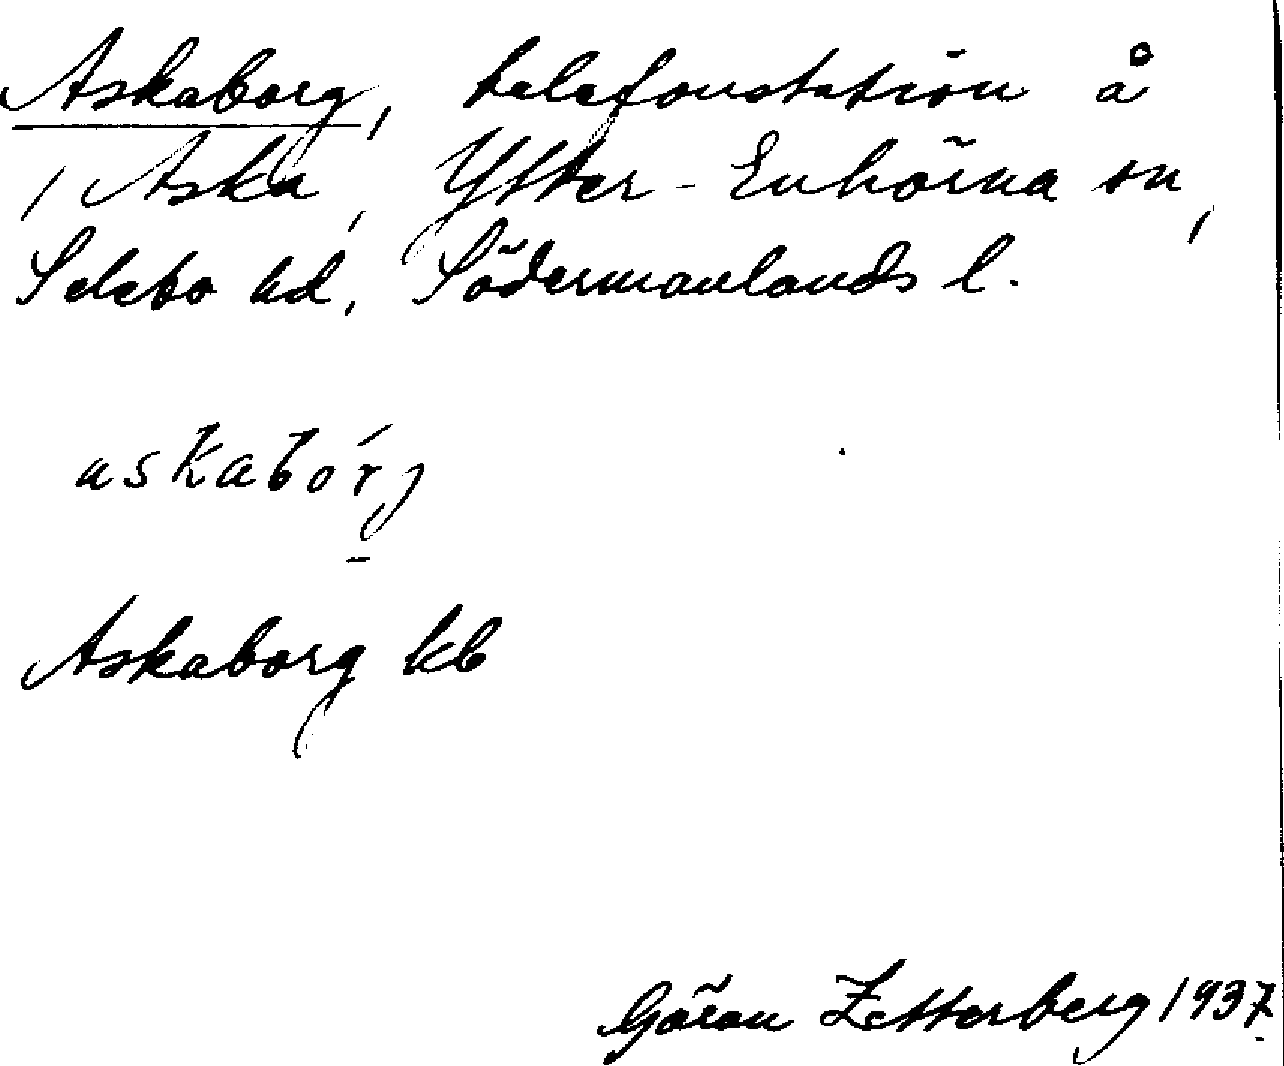 Askaborg, telefonstation å
1 Aska, Ytter-Enhörna sn,
Selebo hd, Södermanlands l.
askabórj
Askaborg kb
Göran Zetterberg 1937